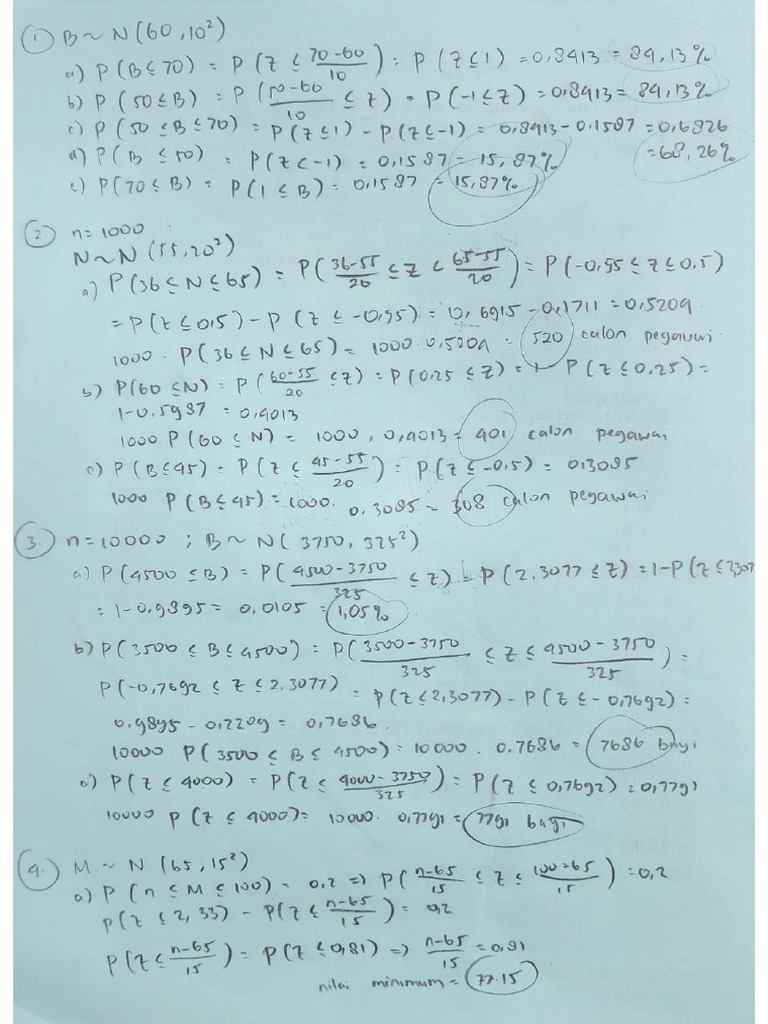 ① B ~ N(60,10²)
a) P(B≤70) = P(Z ≤ (70-60)/10) = P(Z≤1) = 0,8413 = 84,13%
b) P(50≤B) = P((50-60)/10 ≤ Z) = P(-1≤Z) = 0,8413 = 84,13%
c) P(50≤B≤70) = P(Z≤1) - P(Z≤-1) = 0,8413-0,1587 = 0,6826
= 68,26%
d) P(B≤50) = P(Z<-1) = 0,1587 = 15,87%
e) P(70≤B) = P(1≤B) = 0,1587 = 15,87%
② n=1000
N~N(55,20²)
a) P(36≤N≤65) = P((36-55)/20 ≤Z≤ (65-55)/20) = P(-0,95≤Z≤0,5)
= P(Z≤0,5) - P(Z≤-0,95) = 0,6915-0,1711 = 0,5204
1000 . P(36≤N≤65) = 1000 . 0,5204 = 520 calon pegawai
b) P(60≤N) = P((60-55)/20 ≤Z) = P(0.25≤Z) = 1- P(Z≤0.25) =
1-0.5987 = 0,4013
1000 P(60≤N) = 1000 . 0,4013 = 401 calon pegawai
c) P(B≤45) = P(Z ≤ (45-55)/20) = P(Z≤-0,5) = 0,3085
1000 P(B≤45) = 1000. 0.3085 ~ 308 calon pegawai
③ n=10000 ; B ~ N(3750, 325²)
a) P(4500≤B) = P((4500-3750)/325 ≤Z) = P(2.3077≤Z) = 1-P(Z≤2,307
= 1-0,9895 = 0,0105 = 1,05%
b) P(3500≤B≤4500) = P((3500-3750)/325 ≤Z≤ (4500-3750)/325) =
P(-0,7692≤Z≤2.3077) = P(Z≤2,3077) - P(Z≤-0,7692) =
0.9895-0,2209 = 0,7686
10000 P(3500≤B≤4500) = 10000 . 0.7686 = 7686 bayi
c) P(Z≤4000) = P(Z ≤ (4000-3750)/325) = P(Z≤0,7692) = 0,7791
10000 P(Z≤4000) = 10000. 0,7791 = 7791 bayi
④ M ~ N(65,15²)
a) P(n≤M≤100) = 0,2 => P((n-65)/15 ≤Z≤ (100-65)/15) = 0,2
P(Z≤2,33) - P(Z≤ (n-65)/15) = 0,2
P(Z≤ (n-65)/15) = P(Z≤0,81) => (n-65)/15 = 0,81
nilai minimum = 77.15